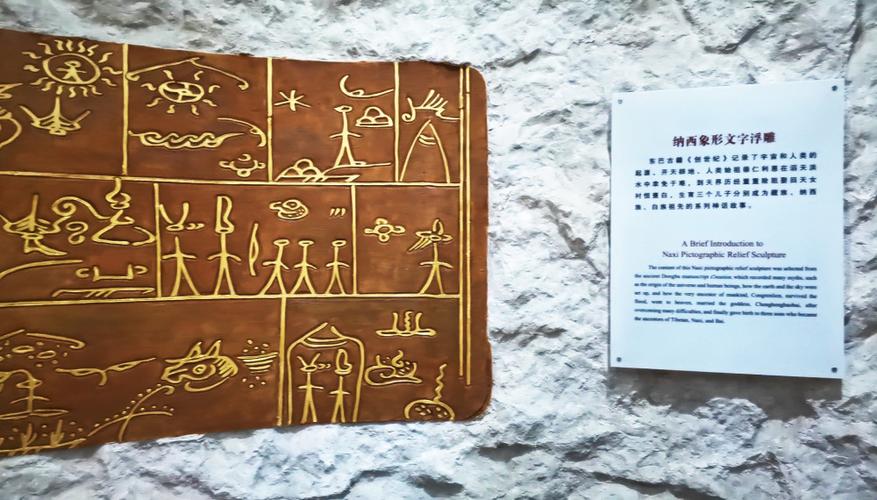 纳西象形文字浮雕
东巴古籍《创世纪》记录了宇宙和人类的
起源，开天辟地、人类始祖崇仁利恩在滔天洪
水中幸免于难，到天界历经重重险阻娶回天女
衬恒褒白，生育三个儿子分别成为藏族、纳西
族、白族祖先的系列神话故事。
A Brief Introduction to
Naxi Pictographic Relief Sculpture
The content of this Naxi pictographic relief sculpture was selected from
the ancient Dongba manuscript Creation, which recorded many myths, such
as the origin of the universe and human beings, how the earth and the sky were
set up, and how the very ancestor of mankind, Congrenlien, survived the
flood, went to heaven, married the goddess, Chenghengbaobai, after
overcoming many difficulties, and finally gave birth to three sons who became
the ancestors of Tibetan, Naxi, and Bai.